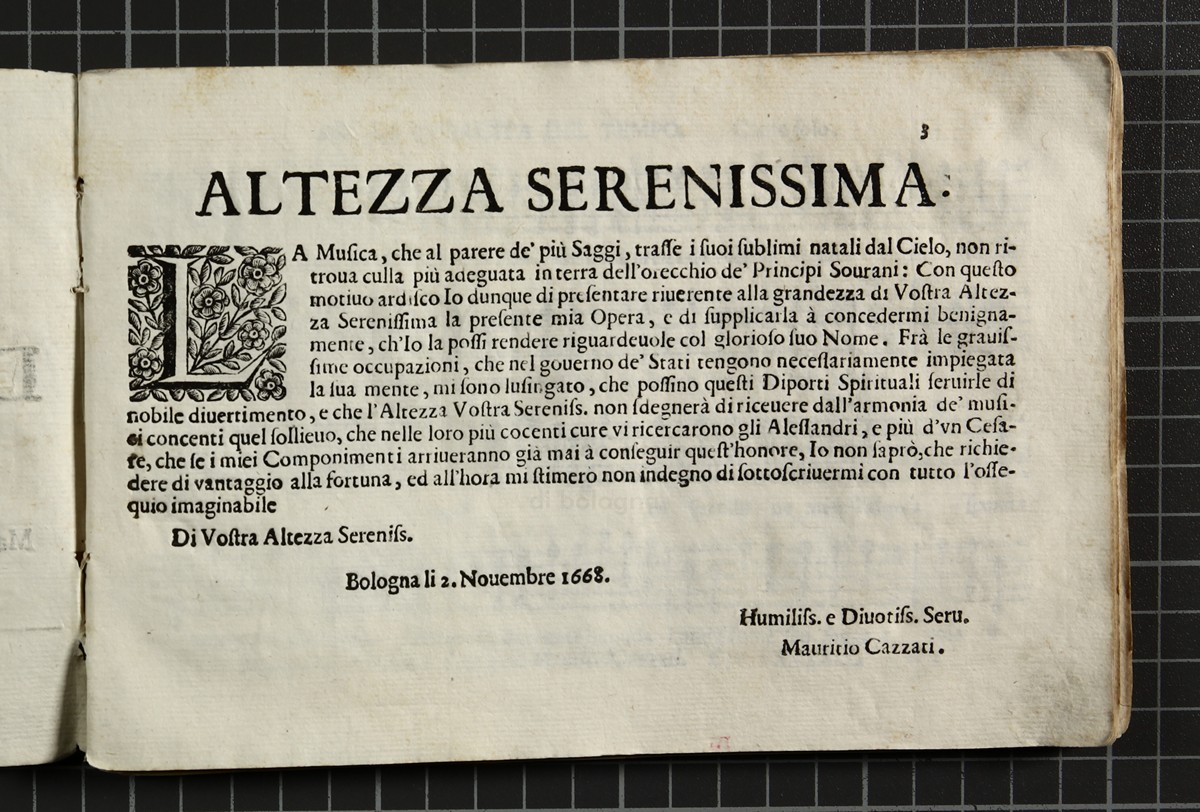 3
ALTEZZA SERENISSIMA:
LA Muſica, che al parere de' più Saggi, traſſe i ſuoi ſublimi natali dal Cielo, non ri-
troua culla più adeguata in terra dell'orecchio de' Principi Sourani: Con queſto
motiuo ardiſco Io dunque di preſentare riuerente alla grandezza di Voſtra Altez-
za Sereniſſima la preſente mia Opera, e di ſupplicarla à concedermi benigna-
mente, ch'Io la poſſi rendere riguardeuole col glorioſo ſuo Nome. Frà le grauiſ-
ſime occupazioni, che nel gouerno de' Stati tengono neceſſariamente impiegata
la ſua mente, mi ſono luſingato, che poſſino queſti Diporti Spirituali ſeruirle di
nobile diuertimento, e che l'Altezza Voſtra Sereniſs. non ſdegnerà di riceuere dall'armonia de' muſi-
ci concenti quel ſollieuo, che nelle loro più cocenti cure vi ricercarono gli Aleſſandri, e più d'vn Ceſa-
re, che ſe i miei Componimenti arriueranno già mai à conſeguir queſt'honore, Io non ſaprò, che richie-
dere di vantaggio alla fortuna, ed all'hora mi ſtimerò non indegno di ſottoſcriuermi con tutto l'oſſe-
quio imaginabile
Di Voſtra Altezza Sereniſs.
Bologna li 2. Nouembre 1668.
Humiliſs. e Diuotiſs. Seru.
Mauritio Cazzati.